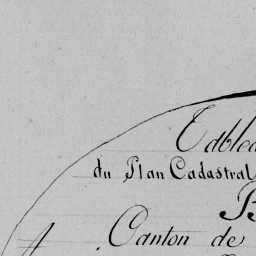 Tablea
du Plan Cadastral
B
Canton de